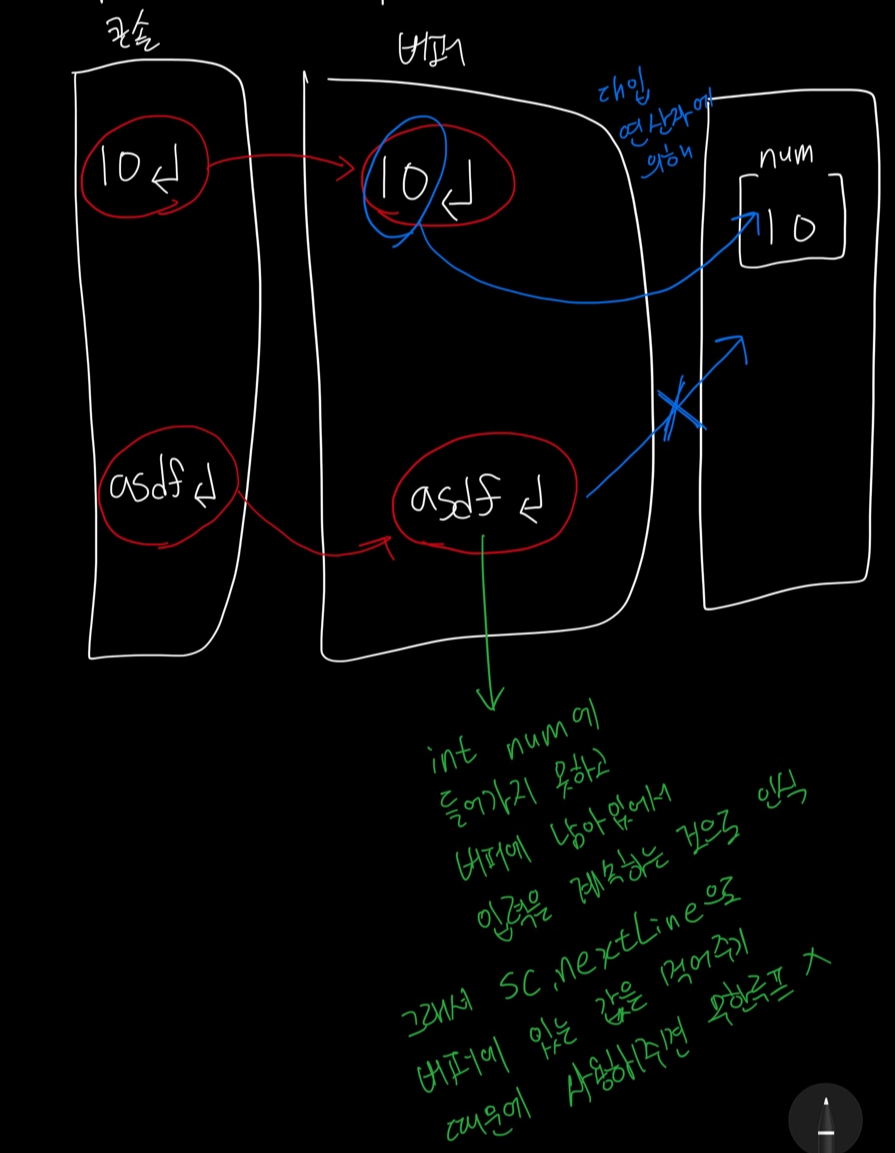 콘솔
버퍼
대입
연산자에
의해
num
10↲
10↲
10
asdf↲
asdf↲
int num에
들어가지 못하고
버퍼에 남아있어서
입력을 계속하는 것으로 인식
그래서 sc.nextLine으로
버퍼에 있는 값을 먹어주기
때문에 사용해주면 무한루프 X